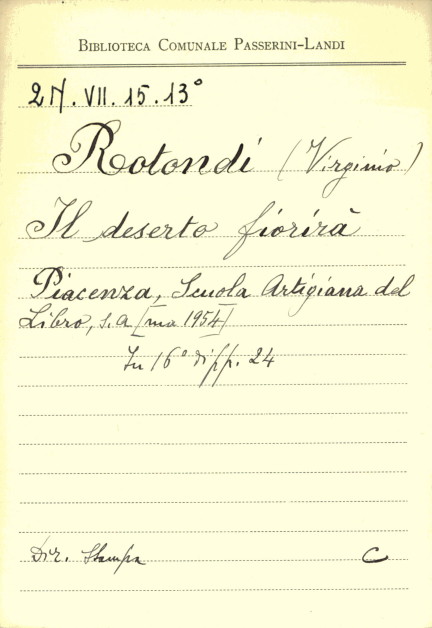 BIBLIOTECA COMUNALE PASSERINI-LANDI
2N.VII.15.13°
Rotondi (Virginio)
Il deserto fiorirà
Piacenza, Scuola Artigiana del
Libro, s.a [ma 1954]
In 16° di pp. 24
Dir. Stampa C